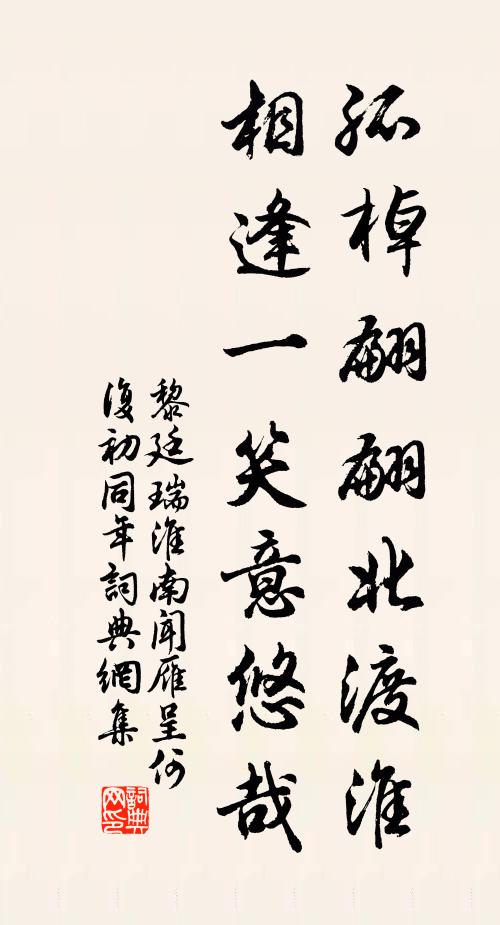 孤棹翩翩北渡淮
相逢一笑意悠哉
黎廷瑞淮南聞雁呈何
復初同年詞典網集
詞典
网印